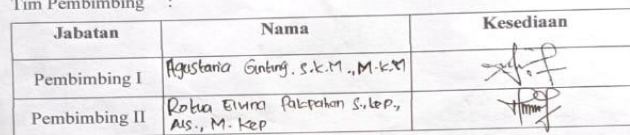 Tim Pembimbing :
Jabatan Nama Kesediaan
Pembimbing I Agustaria Ginting. S.K.M., M.K.M
Pembimbing II Rotua Elvina Pakpahan S.,Kep.,
Ns., M. Kep